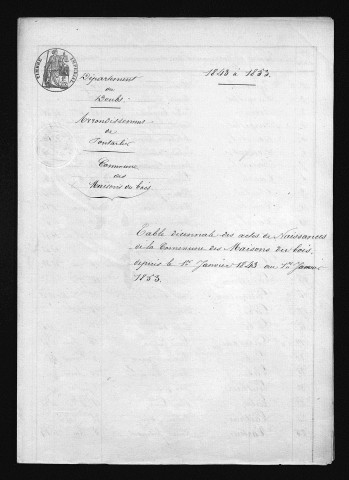 TIMBRE IMPERIAL
1843 à 1853.
Département
du
Doubs.
Arrondissement
de
Pontarlier
Commune
des
Maisons du bois
Table décennale des actes de Naissances
de la Commune des Maisons du bois,
depuis le 1er Janvier 1843 au 1er Janvier
1853.